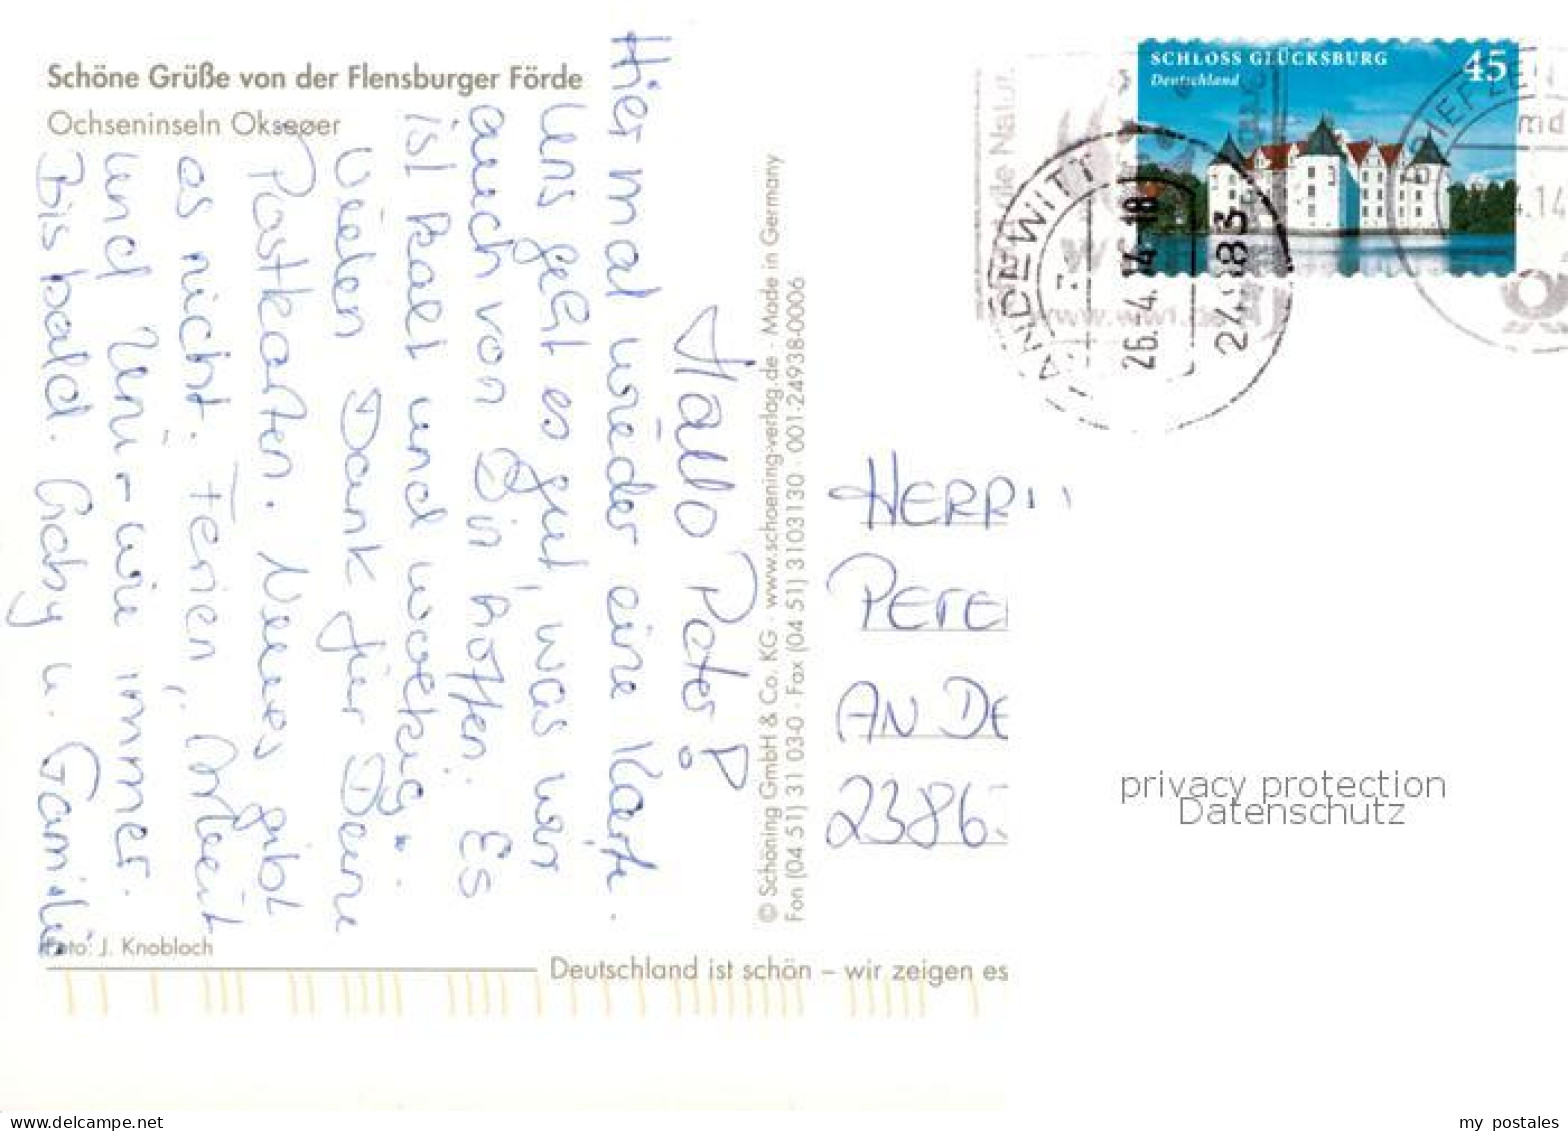 Schöne Grüße von der Flensburger Förde
Ochseninseln Okseøer
Hallo Peter!
Hier mal wieder eine Karte.
Uns geht es gut, was wir
auch von Dir hoffen. Es
ist kalt und wolkig.
Vielen Dank für Deine
Postkarten. Neues gibt
es nicht. Ferien, Arbeit
und Uni - wie immer.
Bis bald. Gaby u. Familie
Foto: J. Knobloch
Deutschland ist schön – wir zeigen es
© Schöning GmbH & Co. KG · www.schoening-verlag.de · Made in Germany
Fon (04 51) 31 03-0 · Fax (04 51) 3103130 · 001-24938-0006
SCHLOSS GLÜCKSBURG
Deutschland
45
HANDEWITT
26.-4.14-18
24983
BRIEFZE
md
4.14
de Natur.
www.wwf.de
HERRN
PETE
AN DE
2386
privacy protection
Datenschutz
www.delcampe.net
my_postales